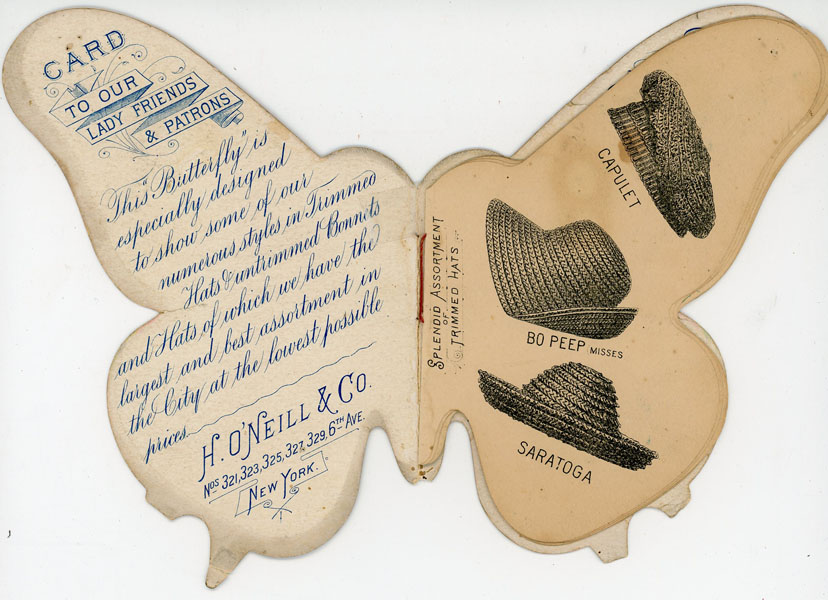 CARD
TO OUR
LADY FRIENDS
& PATRONS
This "Butterfly" is
especially designed
to show some of our
numerous styles in Trimmed
Hats & untrimmed Bonnets
and Hats of which we have the
largest and best assortment in
the City at the lowest possible
prices.
H. O'NEILL & CO.
Nos 321, 323, 325, 327, 329, 6TH AVE.
NEW YORK.
SPLENDID ASSORTMENT
OF
TRIMMED HATS
CAPULET
BO PEEP MISSES
SARATOGA